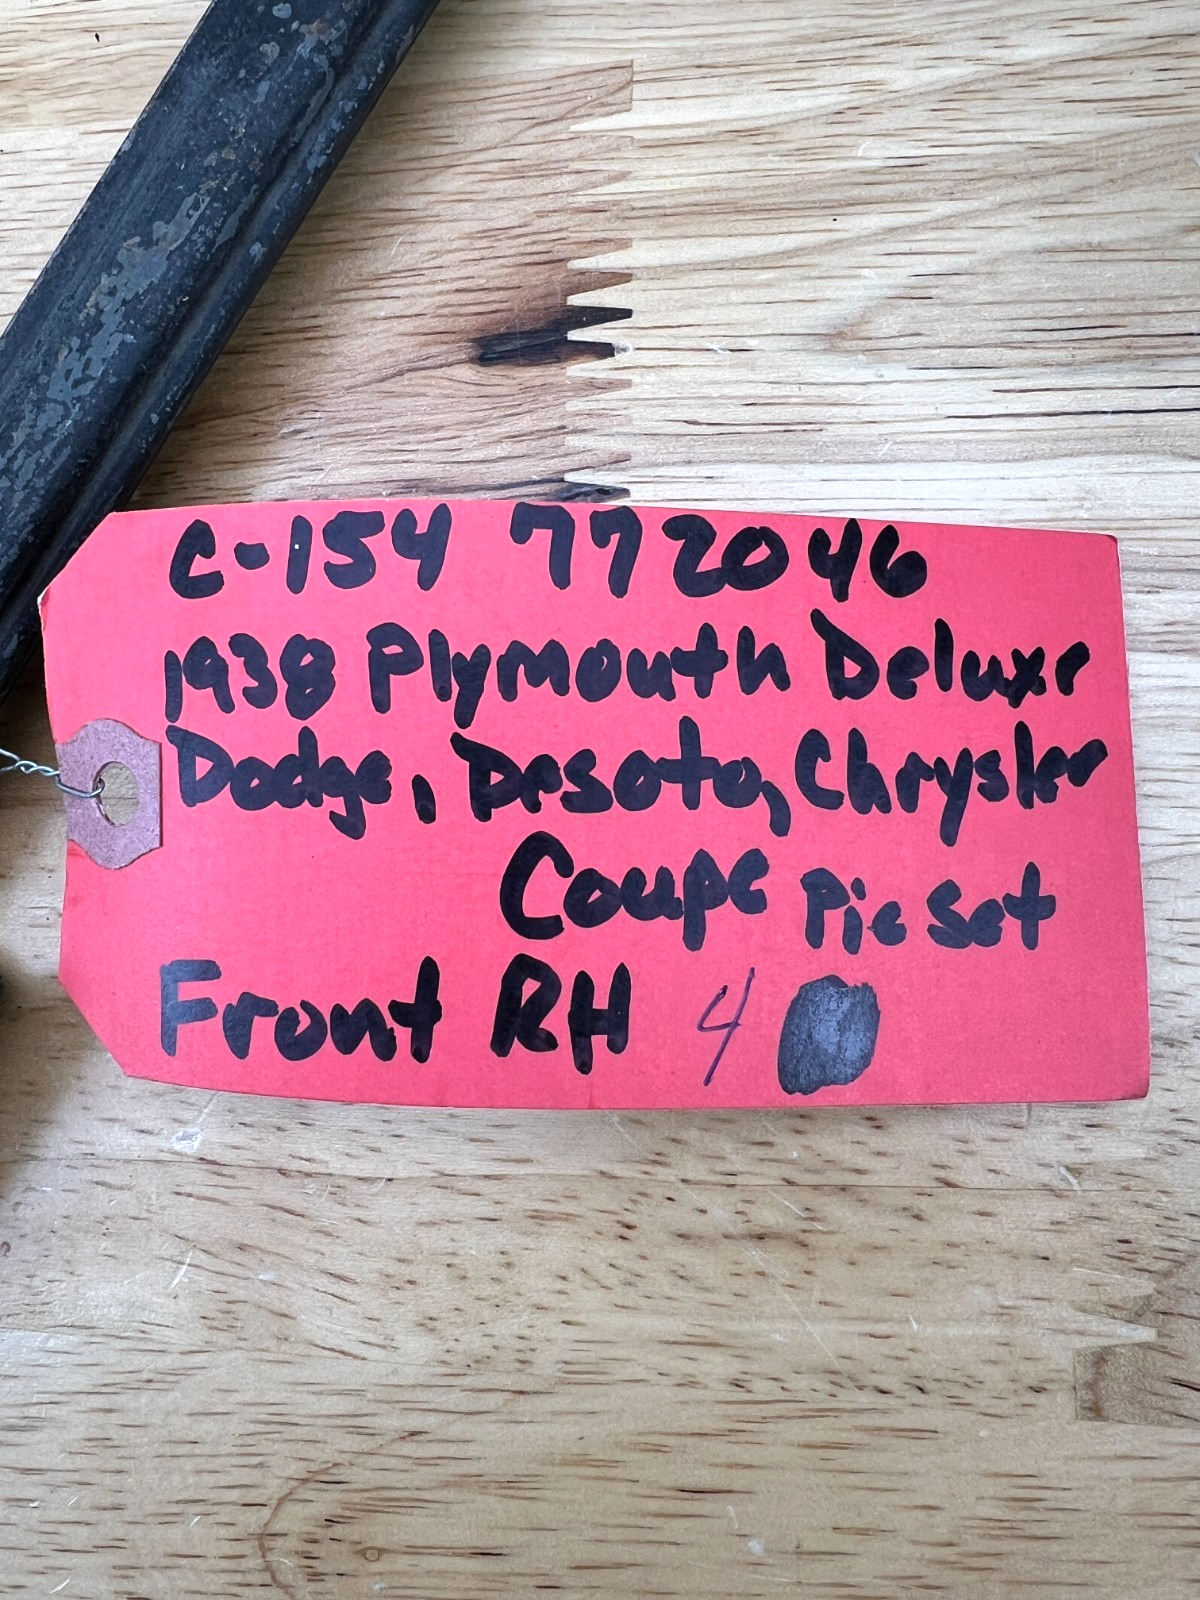 C-154 772046
1938 Plymouth Deluxe
Dodge, Desoto, Chrysler
Coupe Pic Set
Front RH 4